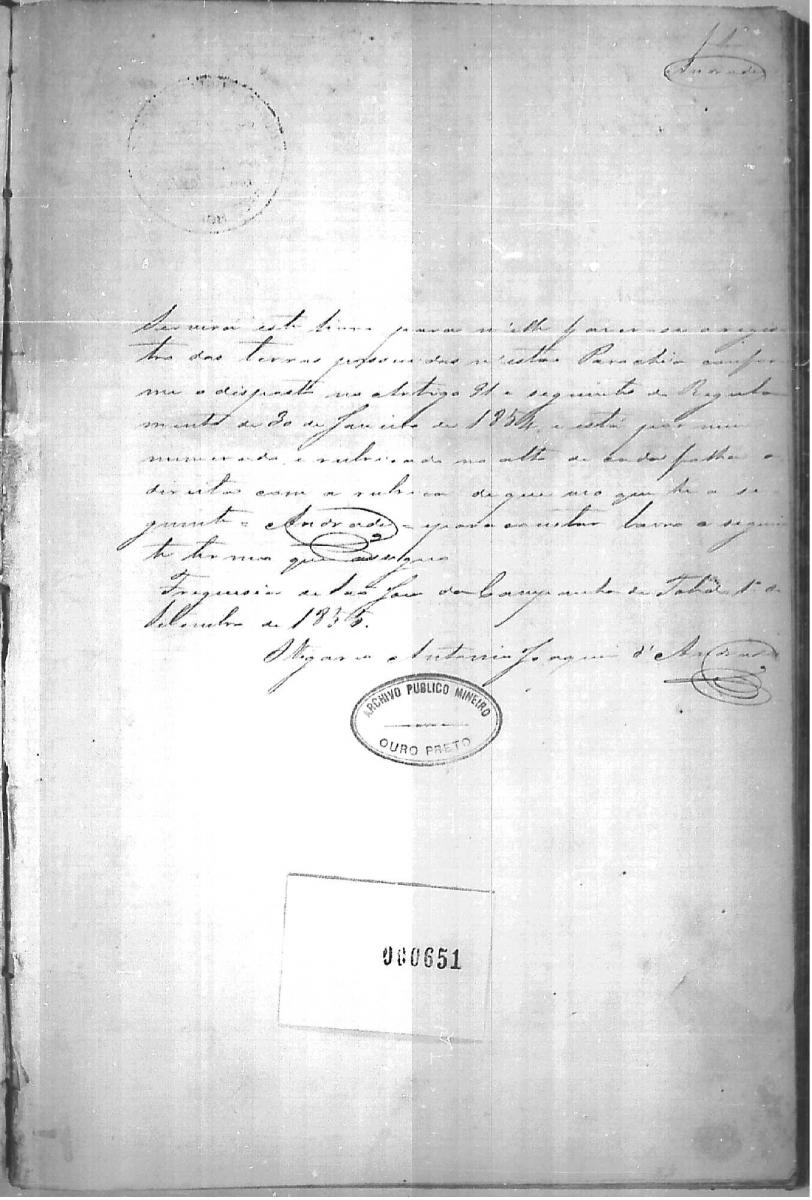 Andrade
Servirá este livro para n'elle fazer-se o regis-
tro das terras possuidas n'esta Parochia confor-
me o disposto no Artigo 91 e seguintes do Regula-
mento de 30 de Janeiro de 1854, e está por mim
numerado e rubricado no alto de cada folha a
direita com a rubrica de que uso que he a se-
guinte = Andrade = e para constar lavro o seguin-
te termo que
Freguesia de São José da Campanha de 1º de
de 1855.
O Vigario Antonio Joaquim d'Andrade
ARCHIVO PUBLICO MINEIRO
OURO PRETO
000651